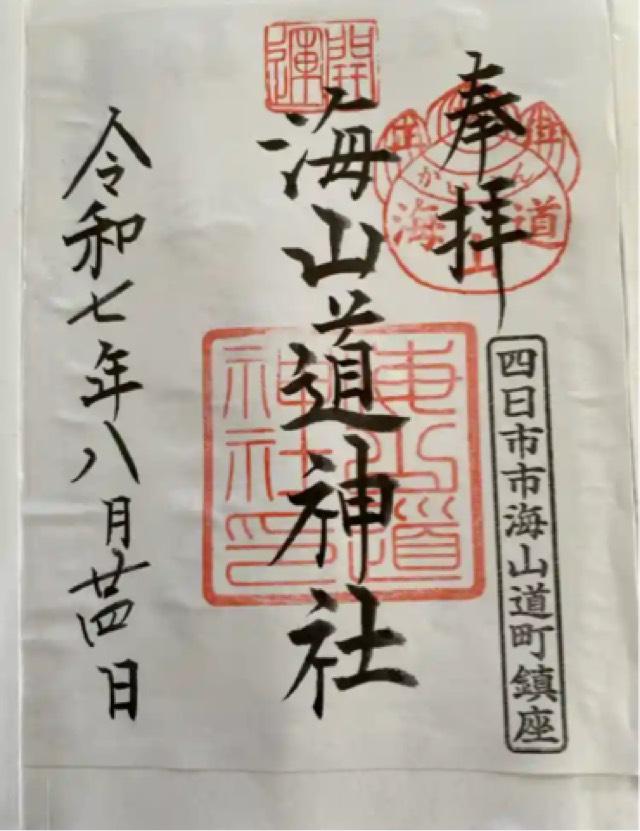 奉拝
海山道
四日市市海山道町鎮座
開運
海山道神社
海山道
神社印
令和七年八月廿四日